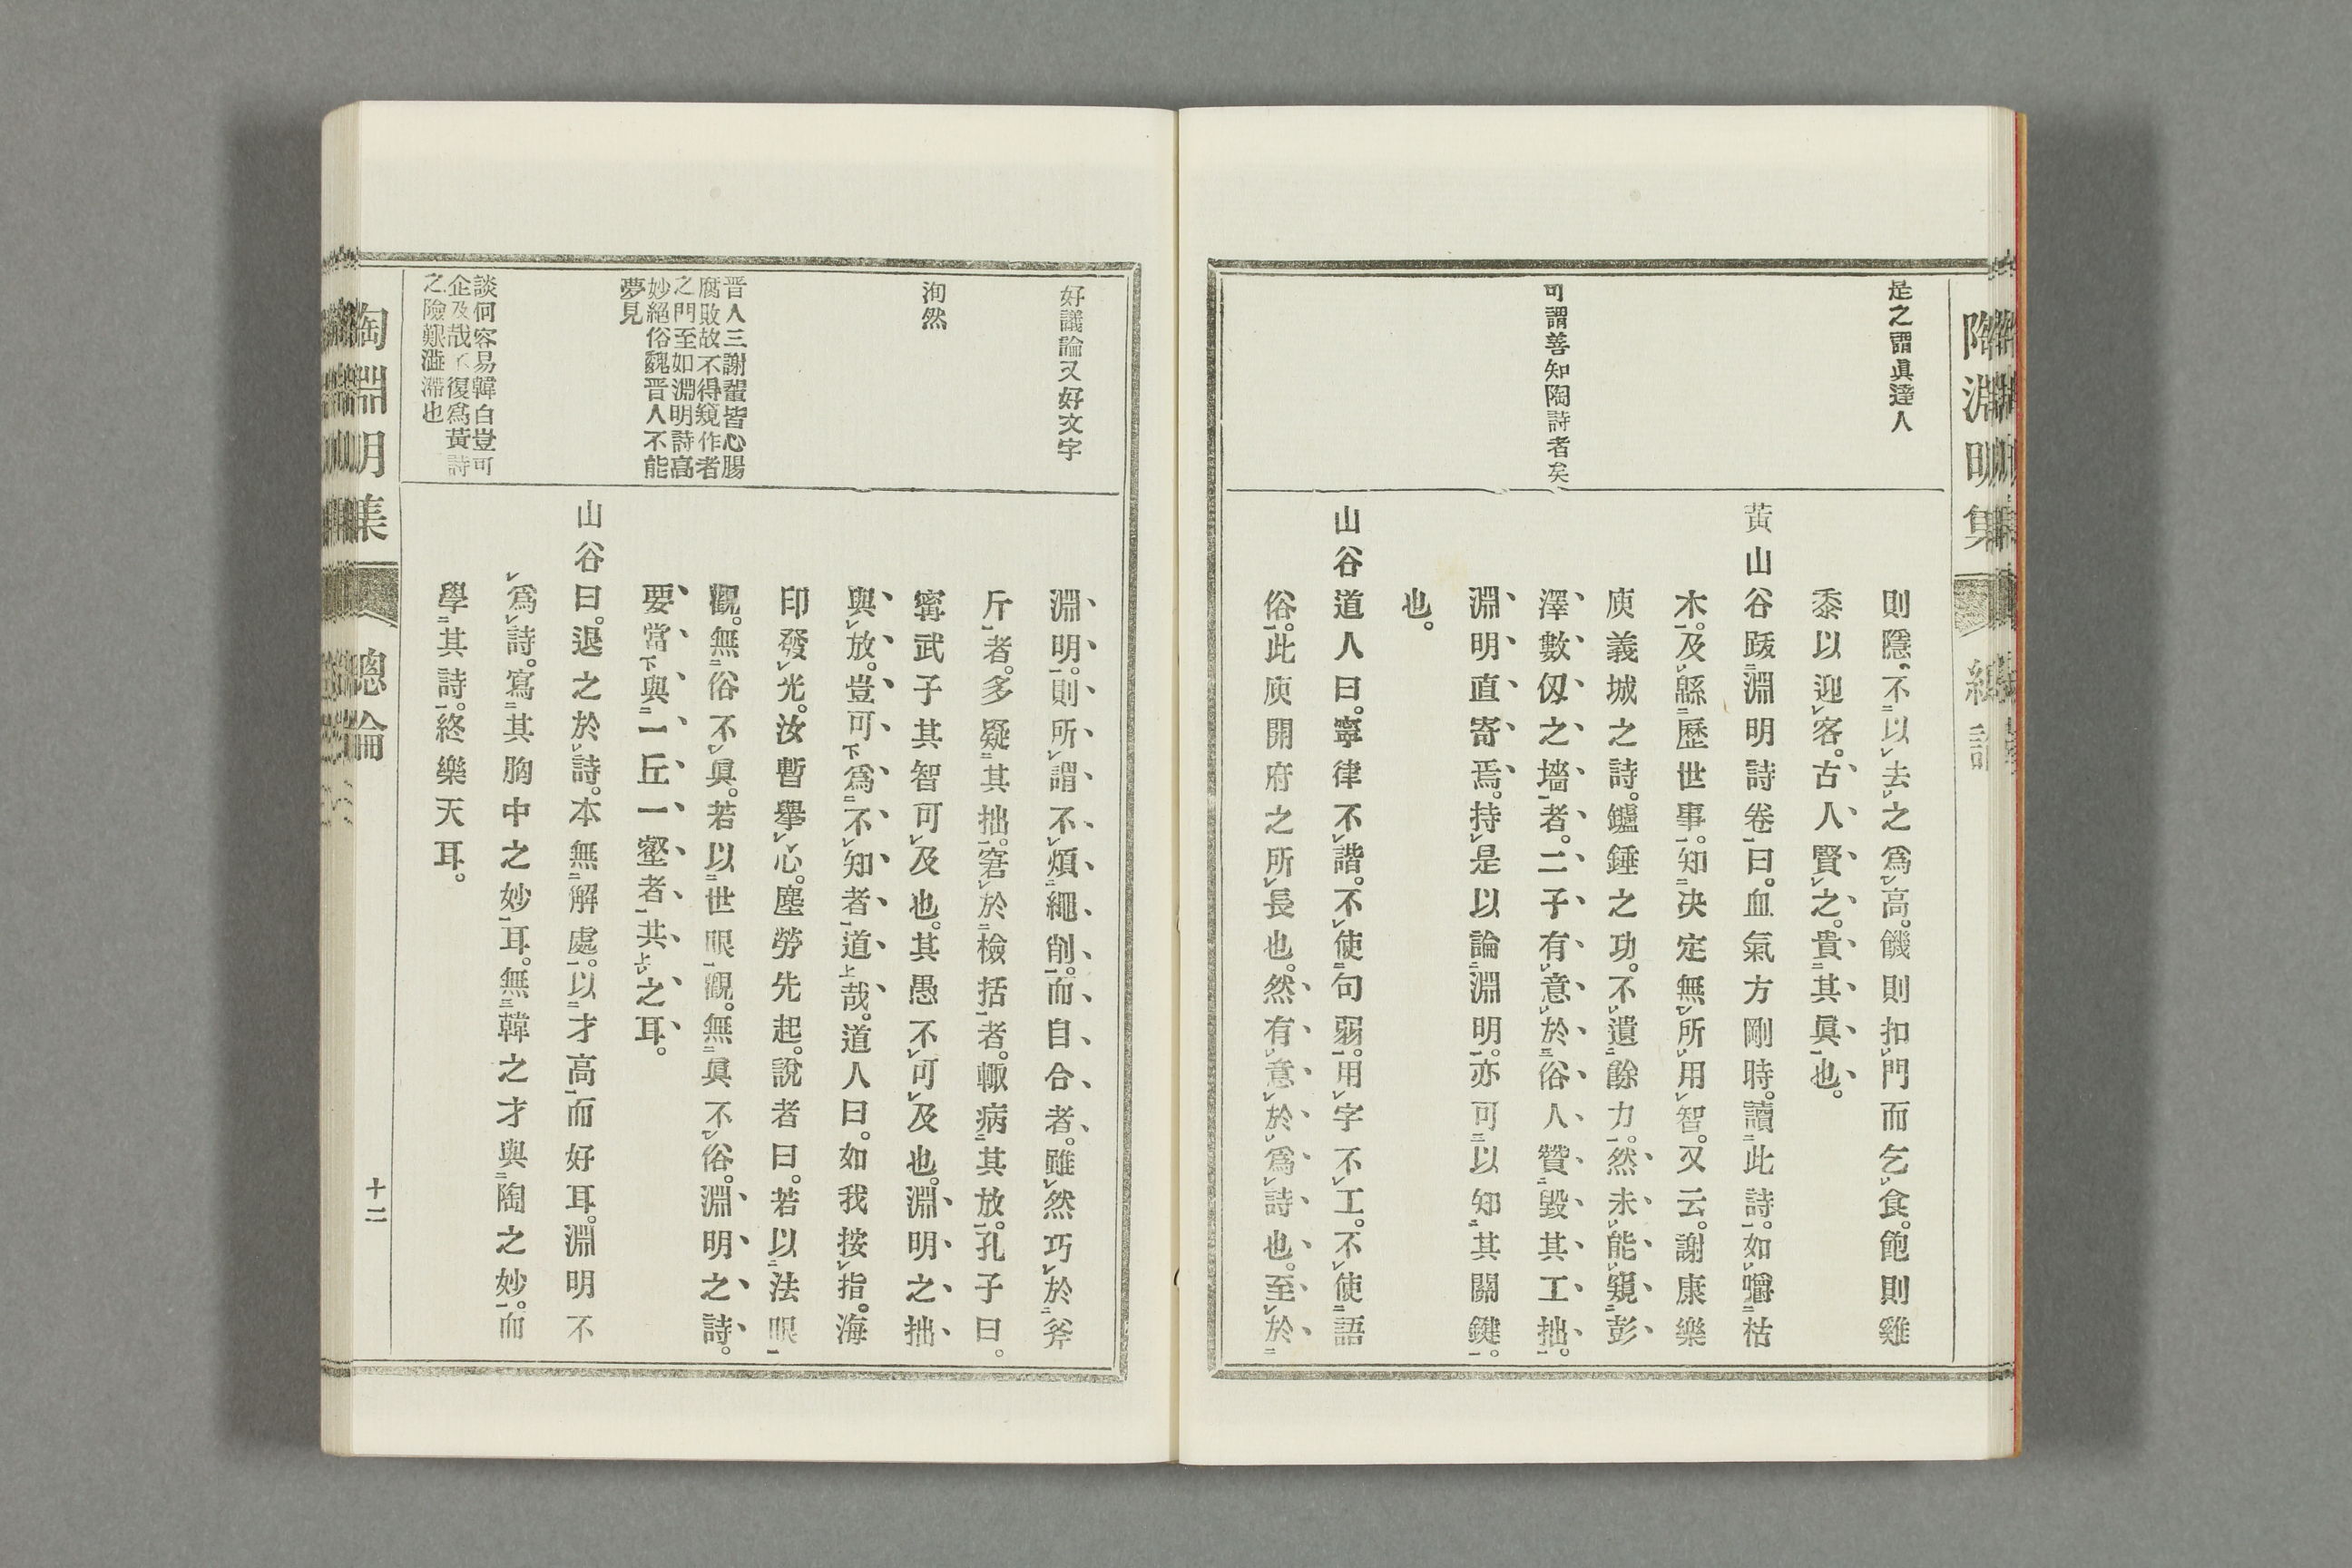 是之謂眞達人
可謂善知陶詩者矣
則隱。不以去之爲高。饑則扣門而乞食。飽則雞
黍以迎客。古人賢之。貴其眞也。
黃山谷跋淵明詩卷曰。血氣方剛時。讀此詩。如嚼枯
木。及緜歷世事。知决定無所用智。又云。謝康樂
庾義城之詩。鑪錘之功。不遺餘力。然未能窺彭
澤數仭之墻者。二子有意於俗人贊毀其工拙。
淵明直寄焉。持是以論淵明。亦可以知其關鍵。
也。
山谷道人曰。寧律不諧。不使句弱。用字不工。不使語
俗。此庾開府之所長也。然有意於爲詩也。至於
好議論又好文字
洵然
晋人三謝輩皆心腸
腐敗故不得窺作者
之門至如淵明詩高
妙絕俗魏晋人不能
夢見
談何容易韓白豈可
企及哉不復爲黃詩
之險艱澁滯也
淵明。則所謂不煩繩削。而自合者。雖然巧於斧
斤者。多疑其拙。窘於檢括者。輙病其放。孔子曰。
寗武子其智可及也。其愚不可及也。淵明之拙
與放。豈可爲不知者道哉。道人曰。如我按指。海
印發光。汝暫擧心。塵勞先起。說者曰。若以法眼
觀。無俗不眞。若以世眼觀。無眞不俗。淵明之詩。
要當與一丘一壑者共之耳。
山谷曰。退之於詩。本無解處。以才高而好耳。淵明不
爲詩。寫其胸中之妙耳。無韓之才與陶之妙。而
學其詩。終樂天耳。
陶淵明集
總論
十二